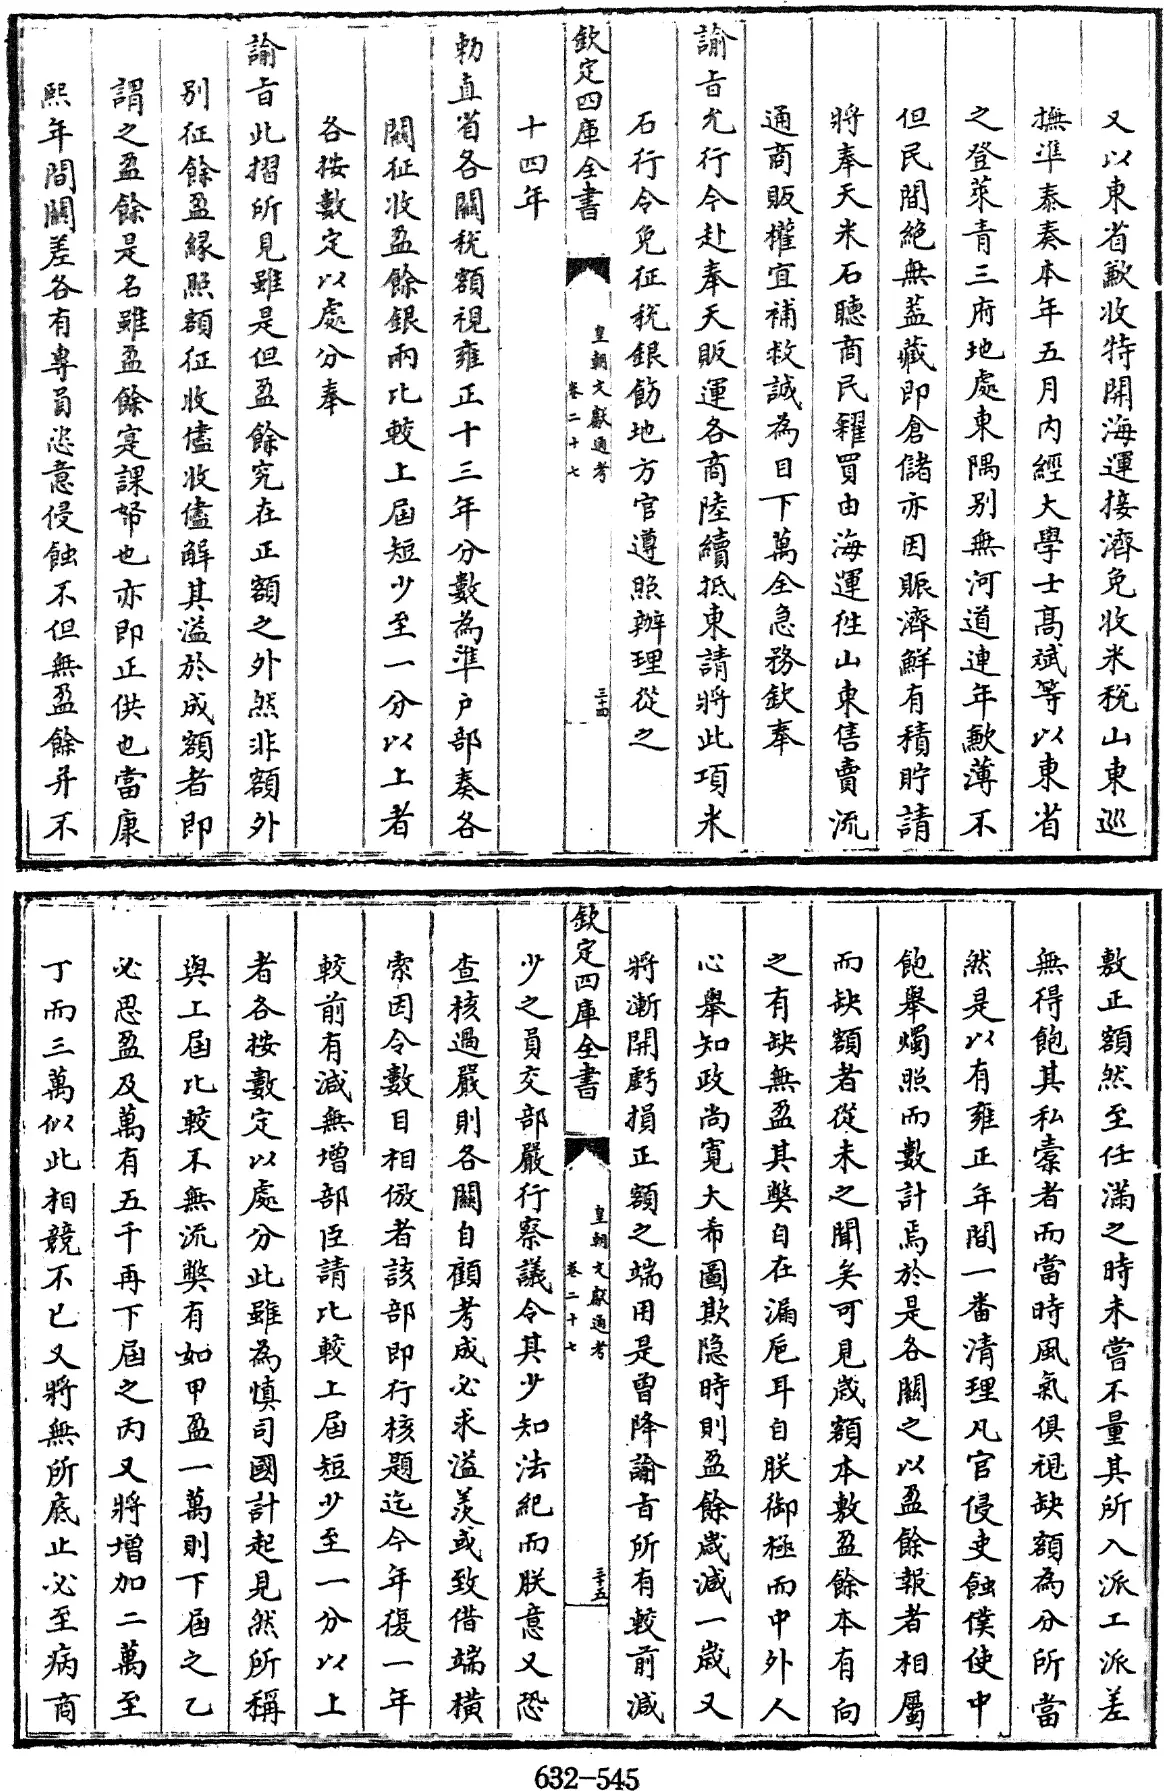 又以東省歉收特開海運接濟免收米稅山東巡
撫準泰奏本年五月内經大學士髙斌等以東省
之登萊青三府地處東隅别無河道連年歉薄不
但民間絶無蓋藏即倉儲亦因賑濟鮮有積貯請
將奉天米石聽商民糴買由海運徃山東售賣流
通商販權宜補救誠為目下萬全急務欽奉
諭㫖允行今赴奉天販運各商陸續抵東請將此項米
石行令免征稅銀飭地方官遵照辦理從之
欽定四庫全書
皇朝文獻通考
卷二十七
三十四
十四年
勅直省各關稅額視雍正十三年分數為準户部奏各
關征收盈餘銀兩比較上屆短少至一分以上者
各按數定以處分奉
諭㫖此摺所見雖是但盈餘究在正額之外然非額外
别征餘盈縁照額征收儘收儘解其溢於成額者即
謂之盈餘是名雖盈餘寔課帑也亦即正供也當康
熙年間關差各有專員恣意侵蝕不但無盈餘并不
敷正額然至任滿之時未嘗不量其所入派工派差
無得飽其私槖者而當時風氣俱視缺額為分所當
然是以有雍正年間一番清理凡官侵吏蝕僕使中
飽舉燭照而數計焉於是各關之以盈餘報者相屬
而缺額者從未之聞矣可見歲額本敷盈餘本有向
之有缺無盈其弊自在漏巵耳自朕御極而中外人
心舉知政尚寛大希圖欺隐時則盈餘歲減一歲又
將漸開虧損正額之端用是曾降諭㫖所有較前減
欽定四庫全書
皇朝文獻通考
卷二十七
三十五
少之員交部嚴行察議令其少知法紀而朕意又恐
查核過嚴則各關自顧考成必求溢羡或致借端横
索因令數目相倣者該部即行核題迄今年復一年
較前有減無增部臣請比較上屆短少至一分以上
者各按數定以處分此雖為慎司國計起見然所稱
與上屆比較不無流弊有如甲盈一萬則下屆之乙
必思盈及萬有五千再下屆之丙又將増加二萬至
丁而三萬似此相競不已又將無所底止必至病商
632-545